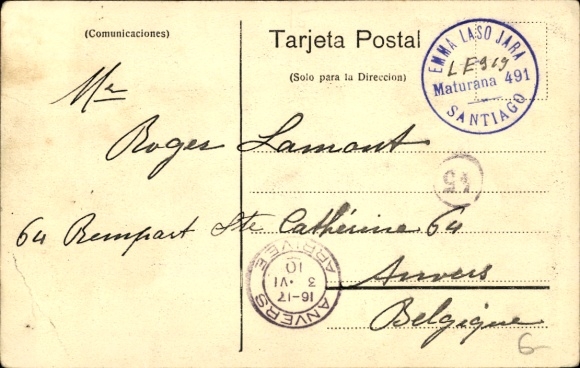 (Comunicaciones)
Tarjeta Postal
(Solo para la Direccion)
EMMA LASO JARA
LE919
Maturana 491
SANTIAGO
Mr
Roger Lamont
64 Rempart Ste Cathérine 64
Anvers
Belgique
ANVERS
16-17
3 · VI
10
ARRIVÉE
6-